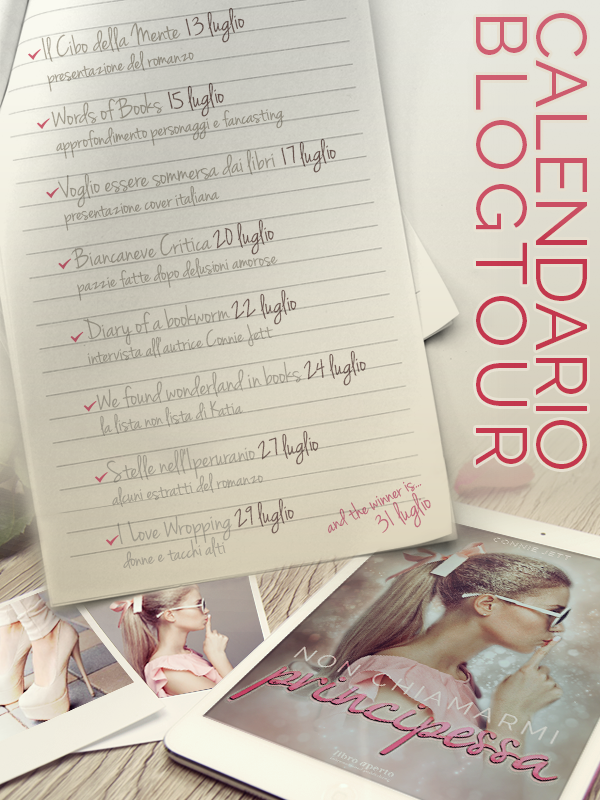 CALENDARIO
BLOGTOUR
Il Cibo della Mente 13 luglio
presentazione del romanzo
Words of Books 15 luglio
approfondimento personaggi e fancasting
Voglio essere sommersa dai libri 17 luglio
presentazione cover italiana
Biancaneve Critica 20 luglio
pazzie fatte dopo delusioni amorose
Diary of a bookworm 22 luglio
intervista all'autrice Connie Jett
We found wonderland in books 24 luglio
la lista non lista di Katia
Stelle nell'Iperuranio 27 luglio
alcuni estratti del romanzo
I Love Wropping 29 luglio
donne e tacchi alti
and the winner is...
31 luglio
CONNIE JETT
NON CHIAMARMI
principessa
libro aperto